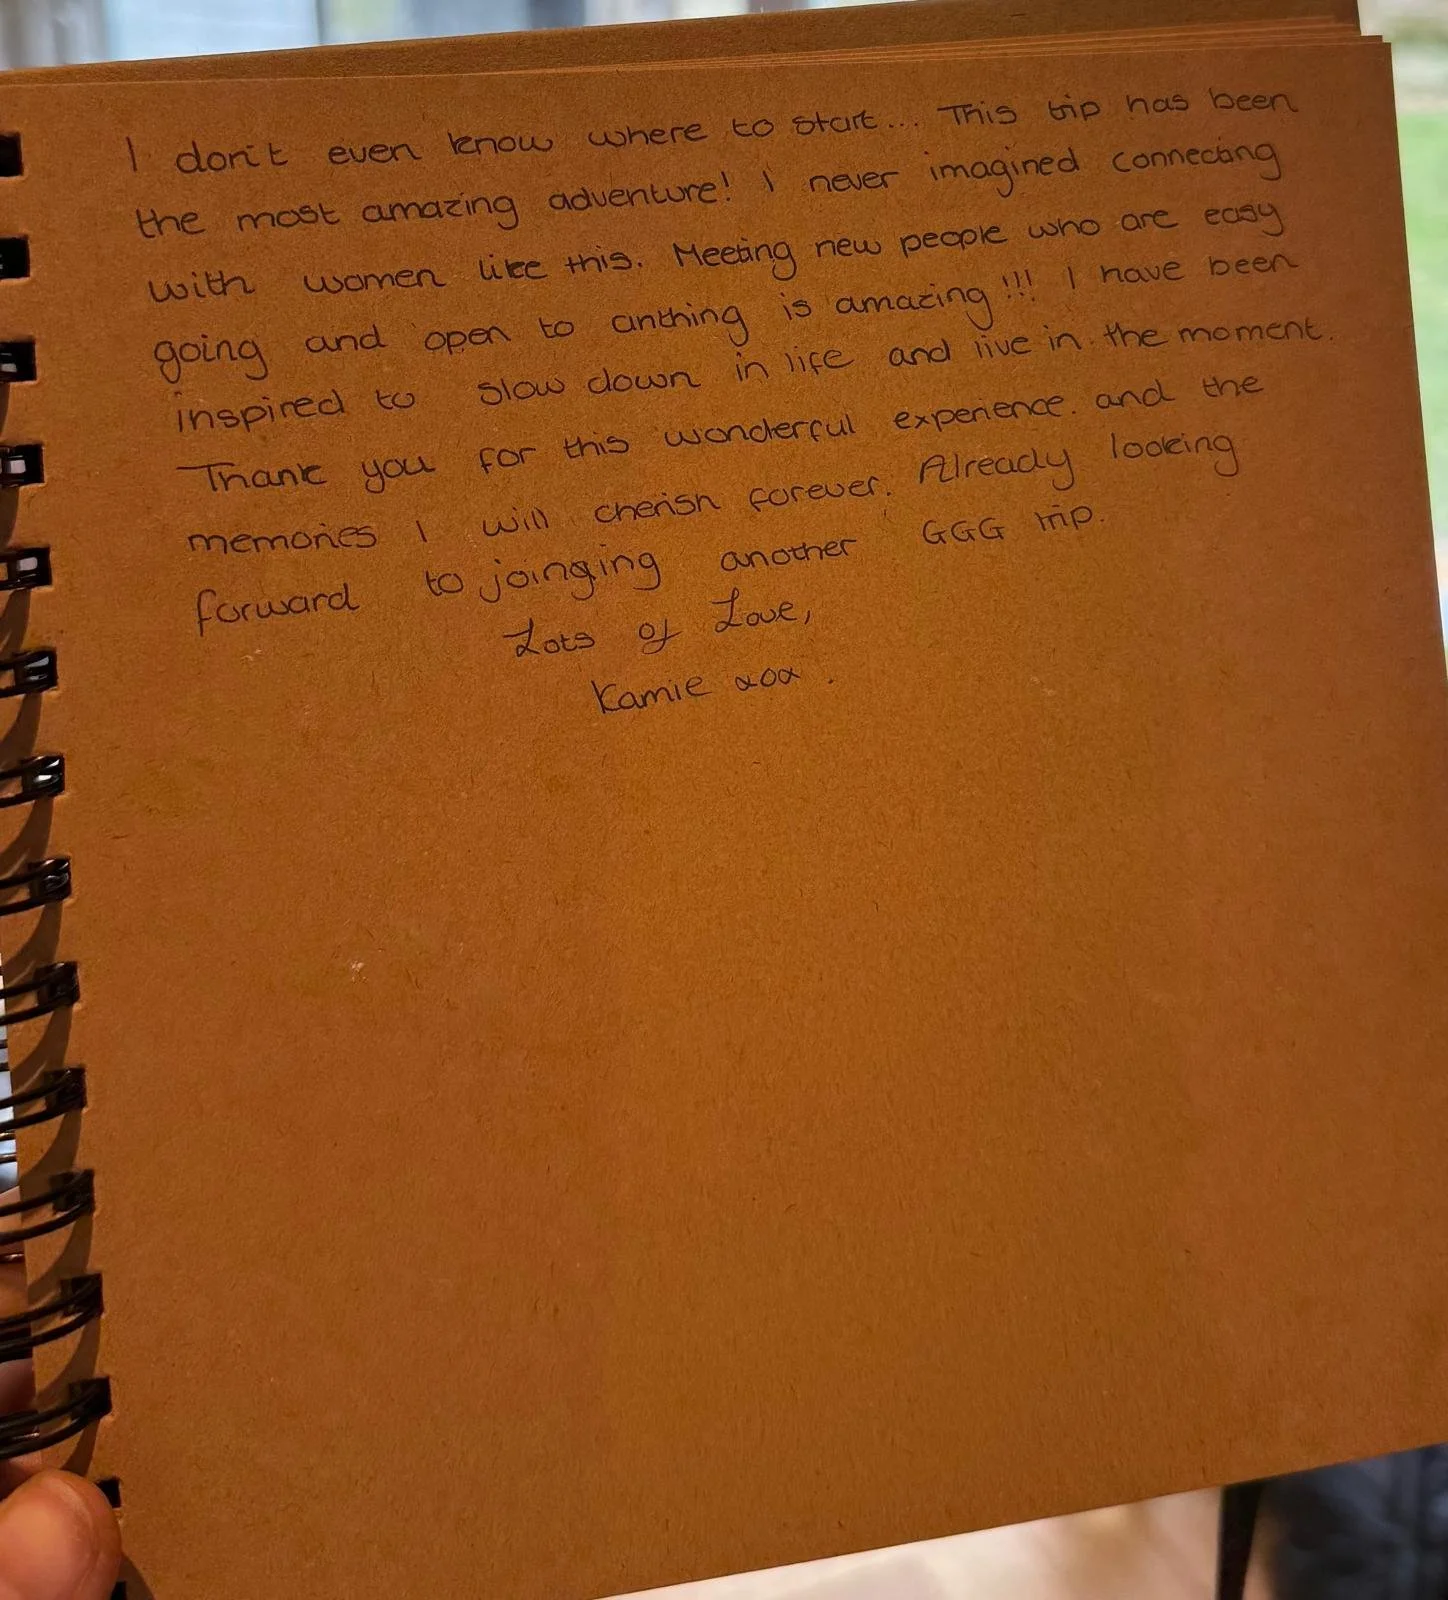 I don't even know where to start... This trip has been
the most amazing adventure! I never imagined connecting
with women like this. Meeting new people who are easy
going and open to anthing is amazing!!! I have been
inspired to slow down in life and live in the moment.
Thank you for this wonderful experience. and the
memories I will cherish forever. Already looking
forward to joinging another GGG trip.
Lots of Love,
Kamie xox.